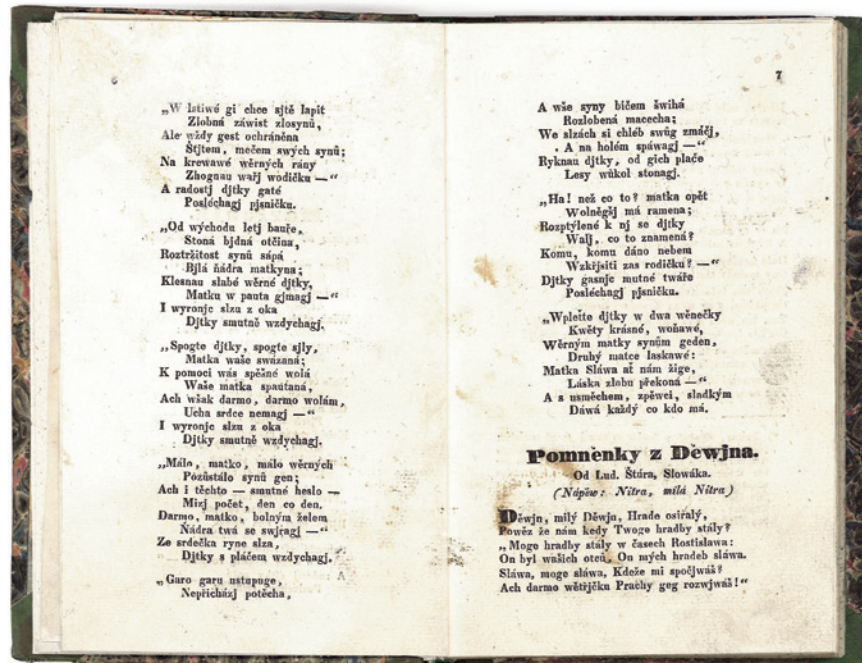 „W lstiwé gi chce sjtě lapit
Zlobná záwist zlosynů,
Ale wždy gest ochráněna
Štjtem, mečem swých synů;
Na krewawé wěrných rány
Zhognau wařj wodičku —“
A radostj djtky gaté
Posléchagj pjsničku.
„Od wýchodu letj bauře,
Stoná bjdná otčina,
Roztržitost synů sápá
Bjlá ňádra matkyna;
Klesnau slabé wěrné djtky,
Matku w pauta gjmagj —“
I wyronje slzu z oka
Djtky smutně wzdychagj.
„Spogte djtky, spogte sjly,
Matka waše swázaná;
K pomoci wás spěšné wolá
Waše matka spautaná,
Ach wšak darmo, darmo wolám,
Ucha srdce nemagj —“
I wyronje slzu z oka
Djtky smutně wzdychagj.
„Málo, matko, málo wěrných
Pozůstálo synů gen;
Ach i těchto — smutné heslo —
Mizj počet, den co den.
Darmo, matko, bolným želem
Ňádra twá se swjragj —“
Ze srdečka ryne slza,
Djtky s pláčem wzdychagj.
„Garo garu ustupuge,
Nepřicházj potěcha,
7
A wše syny bičem šwihá
Rozlobená macecha;
We slzách si chléb swůg zmáčj,
A na holém spáwagj —“
Ryknau djtky, od gich plače
Lesy wůkol stonagj.
„Ha! než co to? matka opět
Wolněgšj má ramena;
Rozptýlené k nj se djtky
Walj, co to znamená?
Komu, komu dáno nebem
Wzkřjsiti zas rodičku? —“
Djtky gasnje mutné twáře
Posléchagj pjsničku.
„Wpleťte djtky w dwa wěnečky
Kwěty krásné, woňawé,
Wěrným matky synům geden,
Druhý matce laskawé:
Matka Sláwa ať nám žige,
Láska zlobu překoná —“
A s usměchem, zpěwci, sladkým
Dáwá každý co kdo má.
Pomněnky z Děwjna.
Od Lud. Štúra, Slowáka.
(Nápěw: Nitra, milá Nitra)
Děwjn, milý Děwjn, Hrade osiřalý,
Powěz že nám kedy Twoge hradby stály?
„Moge hradby stály w časech Rostislawa:
On byl wašich otců, On mých hradeb sláwa.
Sláwa, moge sláwa, Kdeže mi spočjwáš?
Ach darmo wětřjčku Prachy geg rozwjwáš!“